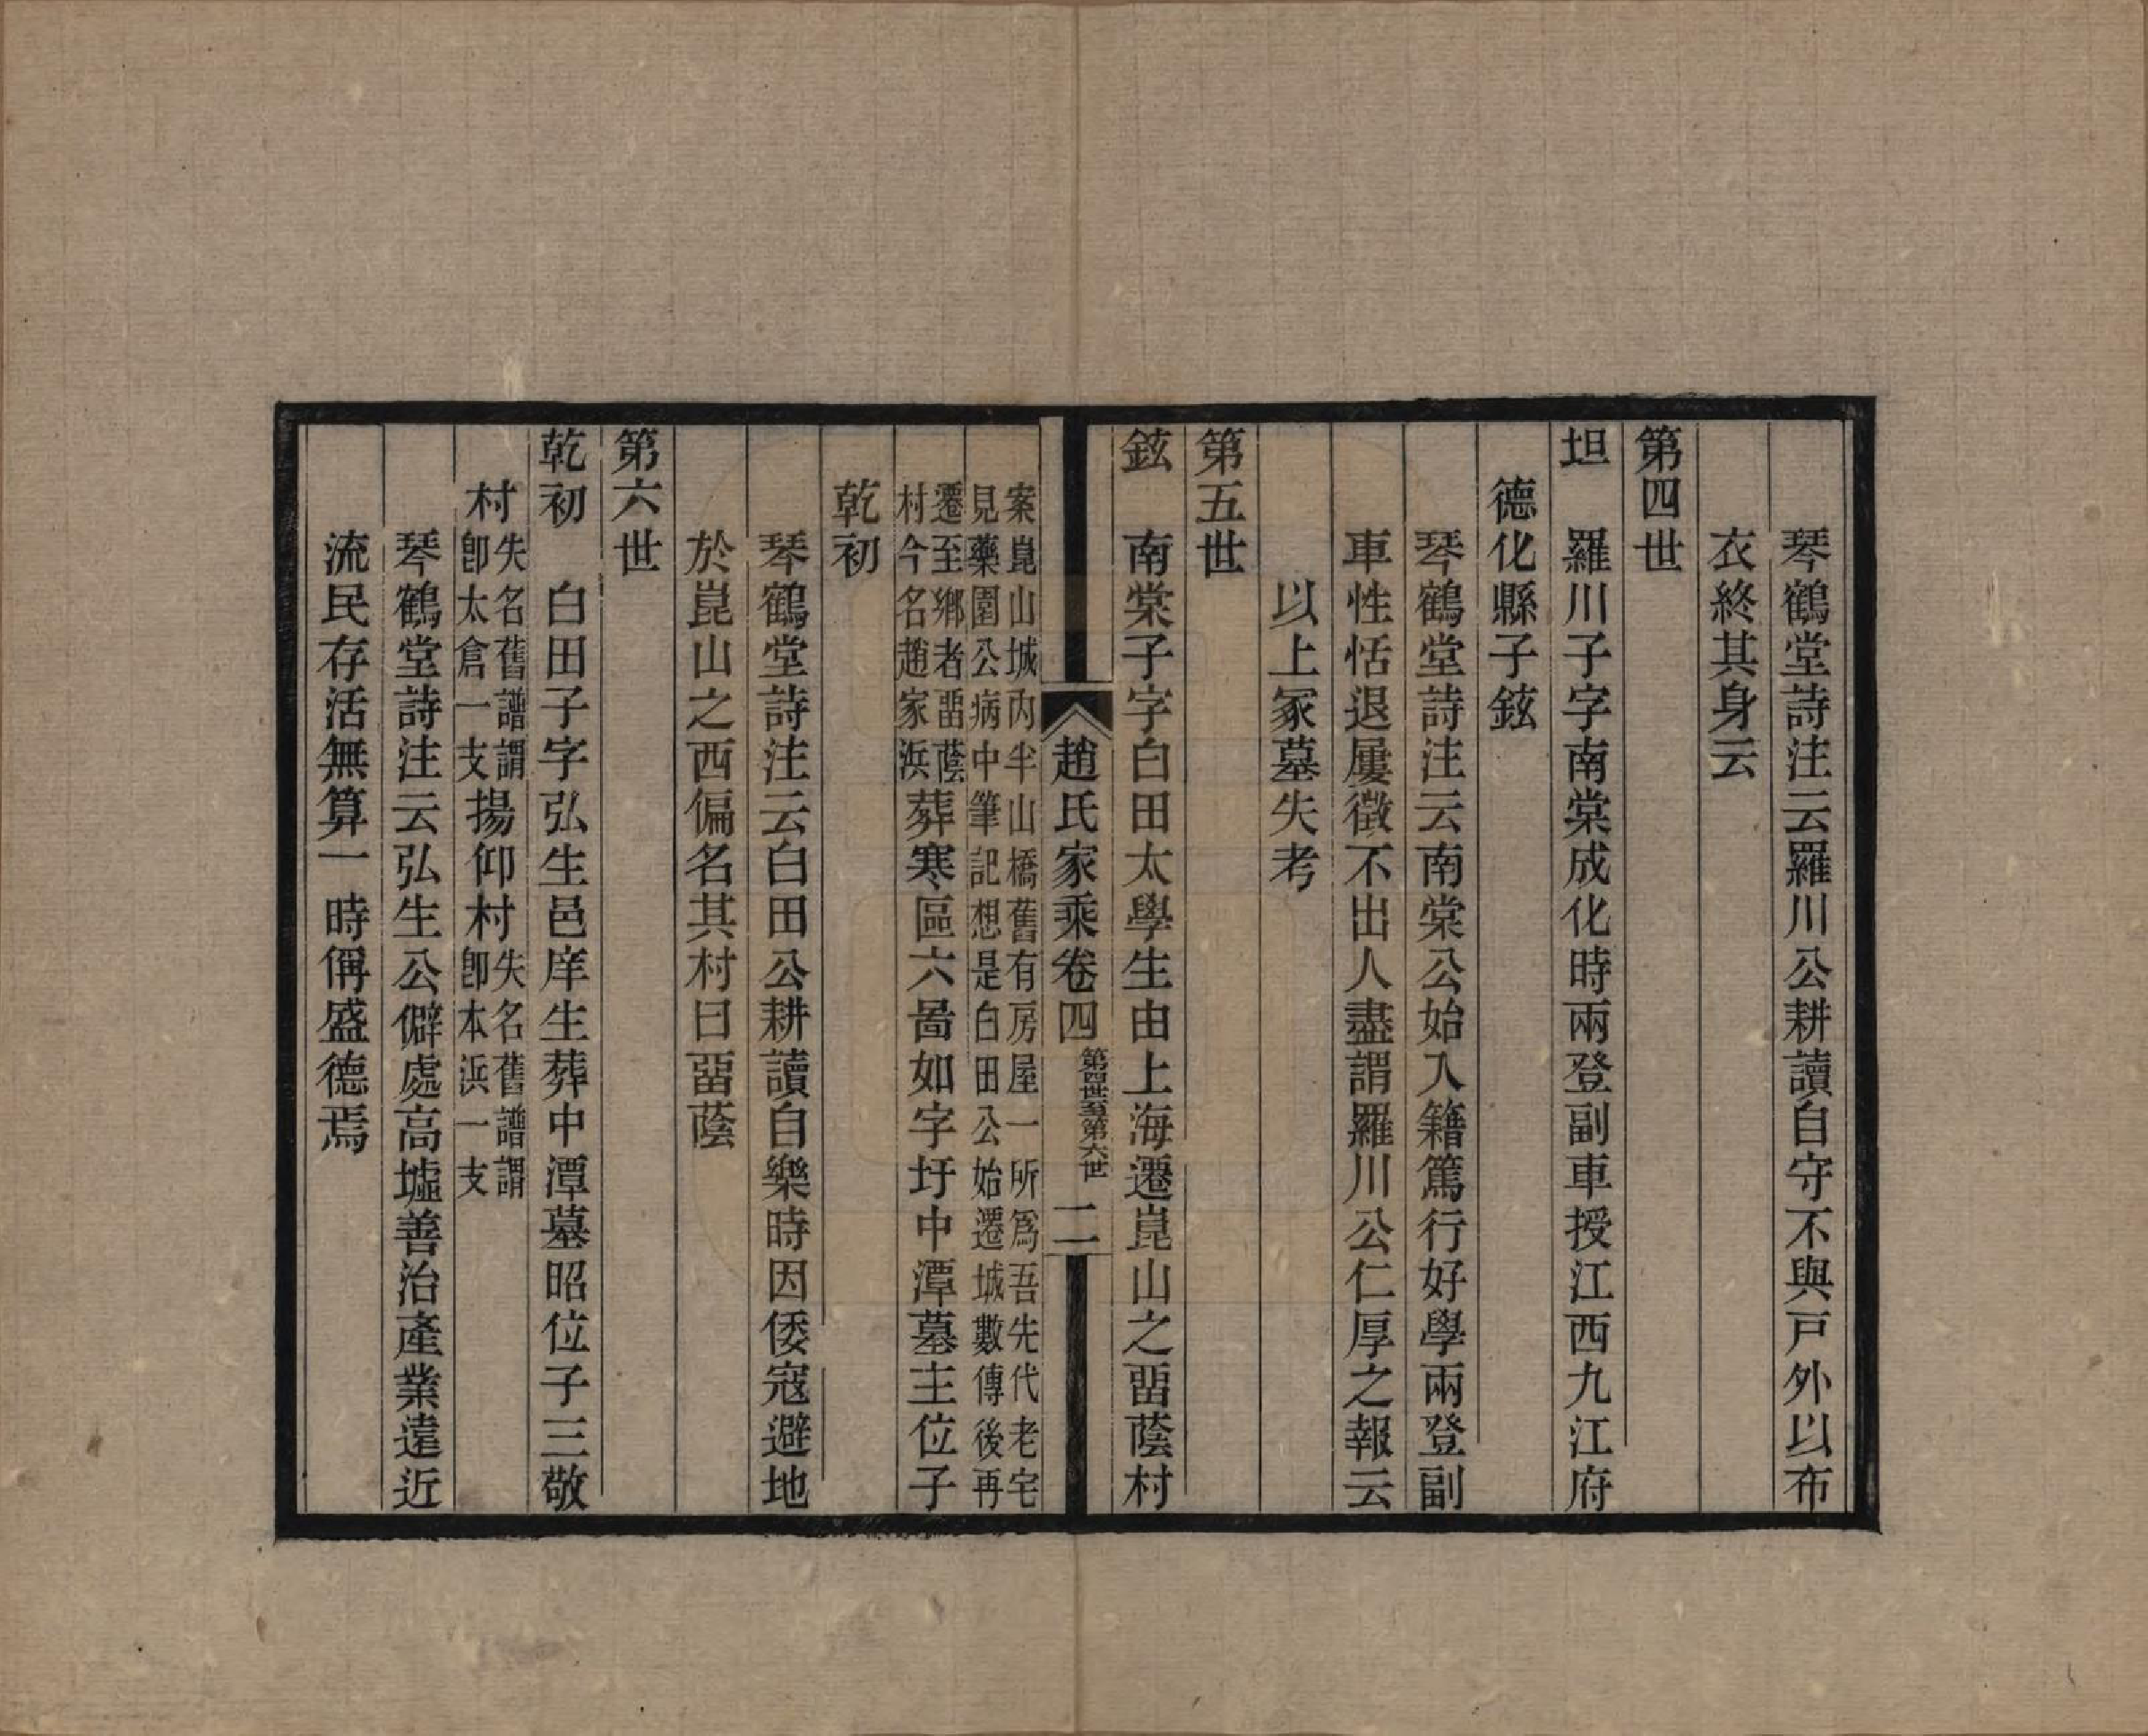 琴鶴堂詩注云羅川公耕讀自守不與戶外以布
衣終其身云
第四世
坦　羅川子字南棠成化時兩登副車授江西九江府
德化縣子鉉
琴鶴堂詩注云南棠公始入籍篤行好學兩登副
車性恬退屢徵不出人盡謂羅川公仁厚之報云
以上冢墓失考
第五世
鉉　南棠子字白田太學生由上海遷崑山之畱蔭村
趙氏家乘卷四　第四世至第六世　二
案崑山城內半山橋舊有房屋一所爲吾先代老宅
見藥園公病中筆記想是白田公始遷城數傳後再
遷至鄉者畱蔭
村今名趙家浜
葬寒區六啚如字圩中潭墓主位子
乾初
琴鶴堂詩注云白田公耕讀自樂時因倭寇避地
於崑山之西偏名其村曰畱蔭
第六世
乾初　白田子字弘生邑庠生葬中潭墓昭位子三敬
村失名舊譜謂卽太倉一支揚仰村失名舊譜謂卽本浜一支
琴鶴堂詩注云弘生公僻處高墟善治產業遠近
流民存活無算一時偁盛德焉